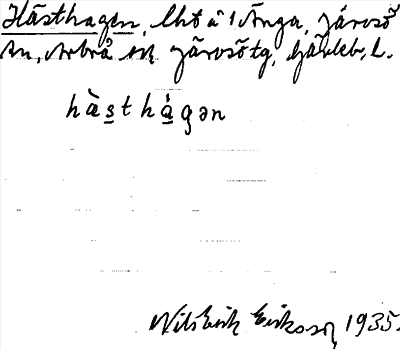 Hästhagen, lht å 1 Änga, Järvsö
sn, Arbrå och Järvsö tg, Gävleb. l.
hàst hágən
Nils Erik Eriksson, 1935.